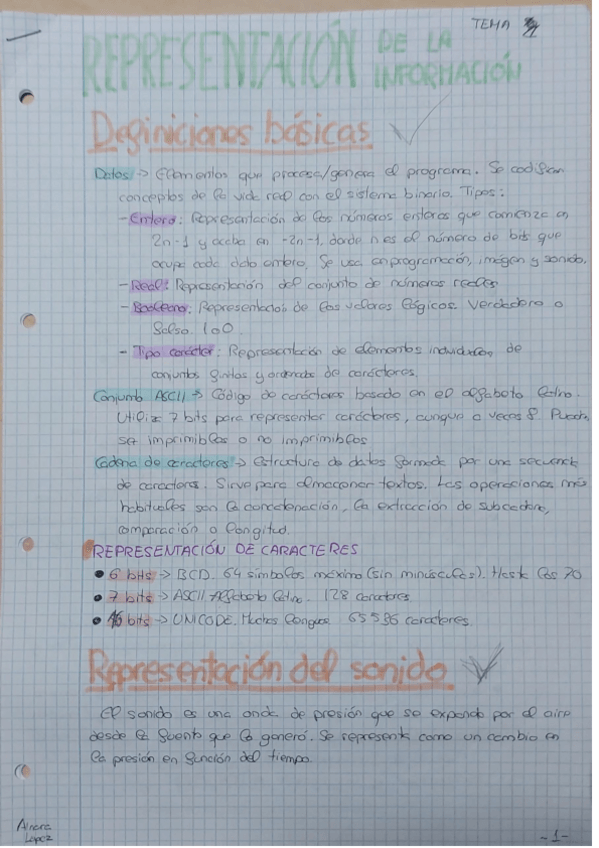 TEMA
REPRESENTACIÓN DE LA
INFORMACIÓN
Definiciones básicas
Datos → Elementos que procesa/genera el programa. Se codifican
conceptos de la vida real con el sistema binario. Tipos:
- Entero: Representación de los números enteros que comienza en
2n-1 y acaba en -2n-1, donde n es el número de bits que
ocupa cada dato entero. Se usa en programación, imagen y sonido.
- Real: Representación del conjunto de números reales
- Booleano: Representación de los valores lógicos. Verdadero o
falso. 1 o 0.
- Tipo carácter: Representación de elementos individuales de
conjuntos finitos y ordenados de carácteres.
Conjunto ASCII → Código de carácteres basado en el alfabeto latino.
Utiliza 7 bits para representar carácteres, aunque a veces 8. Pueden
ser imprimibles o no imprimibles
Cadena de caracteres → estructura de datos formada por una secuencia
de caracteres. Sirve para almacenar textos. Las operaciones más
habituales son la concatenación, la extracción de subcadena,
comparación o longitud.
REPRESENTACIÓN DE CARACTERES
• 6 bits → BCD. 64 símbolos máximo (sin minúsculas). Hasta los 70
• 7 bits → ASCII Alfabeto latino. 128 caracteres
• 16 bits → UNICODE. Muchas lenguas. 65536 caracteres.
Representación del sonido
El sonido es una onda de presión que se expande por el aire
desde la fuente que la generó. Se representa como un cambio en
la presión en función del tiempo.
Ainara
López
-1-